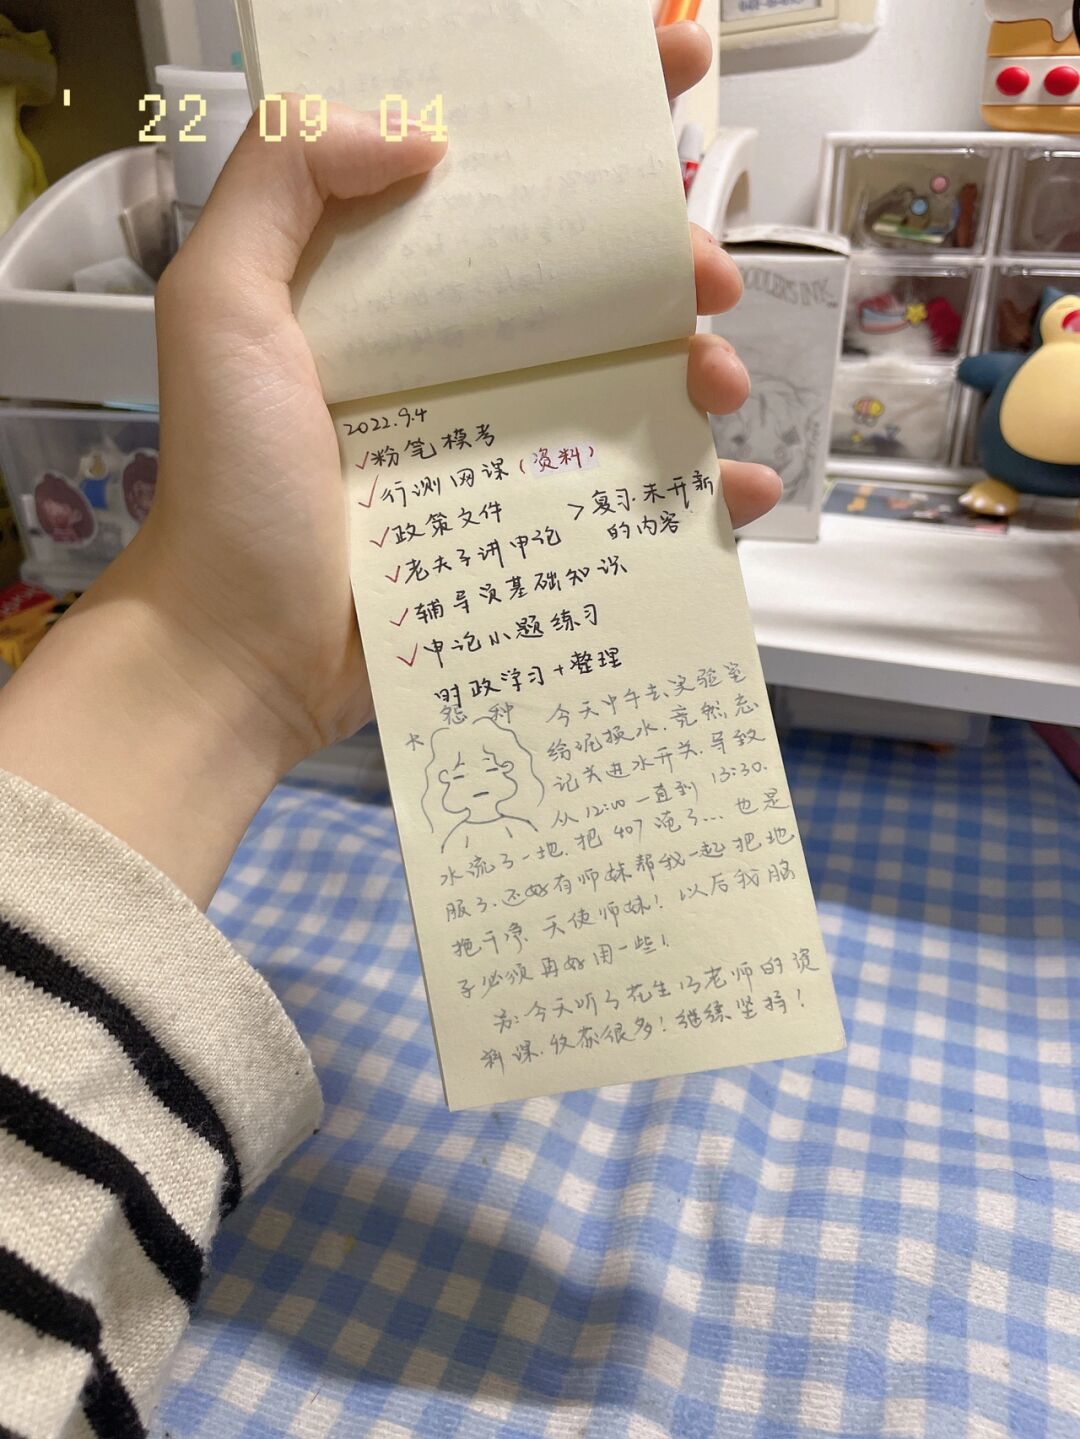 ' 22 09 04
2022.9.4
✓粉笔模考
✓行测网课(资料)
✓政策文件
✓老夫子讲申论 >复习.未开新的内容
✓辅导员基础知识
✓申论小题练习
时政学习+整理
大怨种
今天中午去实验室
给泥换水.竟然忘
记关进水开关.导致
从12:00一直到13:30.
水流了一地.把407淹了...也是
服了.还好有师妹帮我一起把地
拖干净.天使师妹!以后我脑
子必须再好用一些!
另:今天听了花生13老师的资
料课.收获很多!继续坚持!